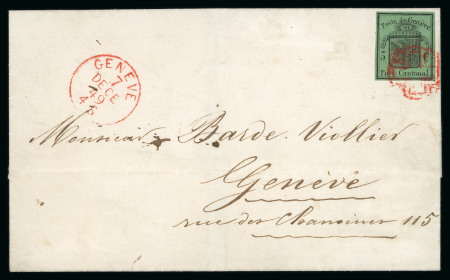 GENÈVE
7
DECE
49
Poste de Genève
Port Cantonal
Monsieur Barde. Viollier
Genève
rue des Chanoines 115